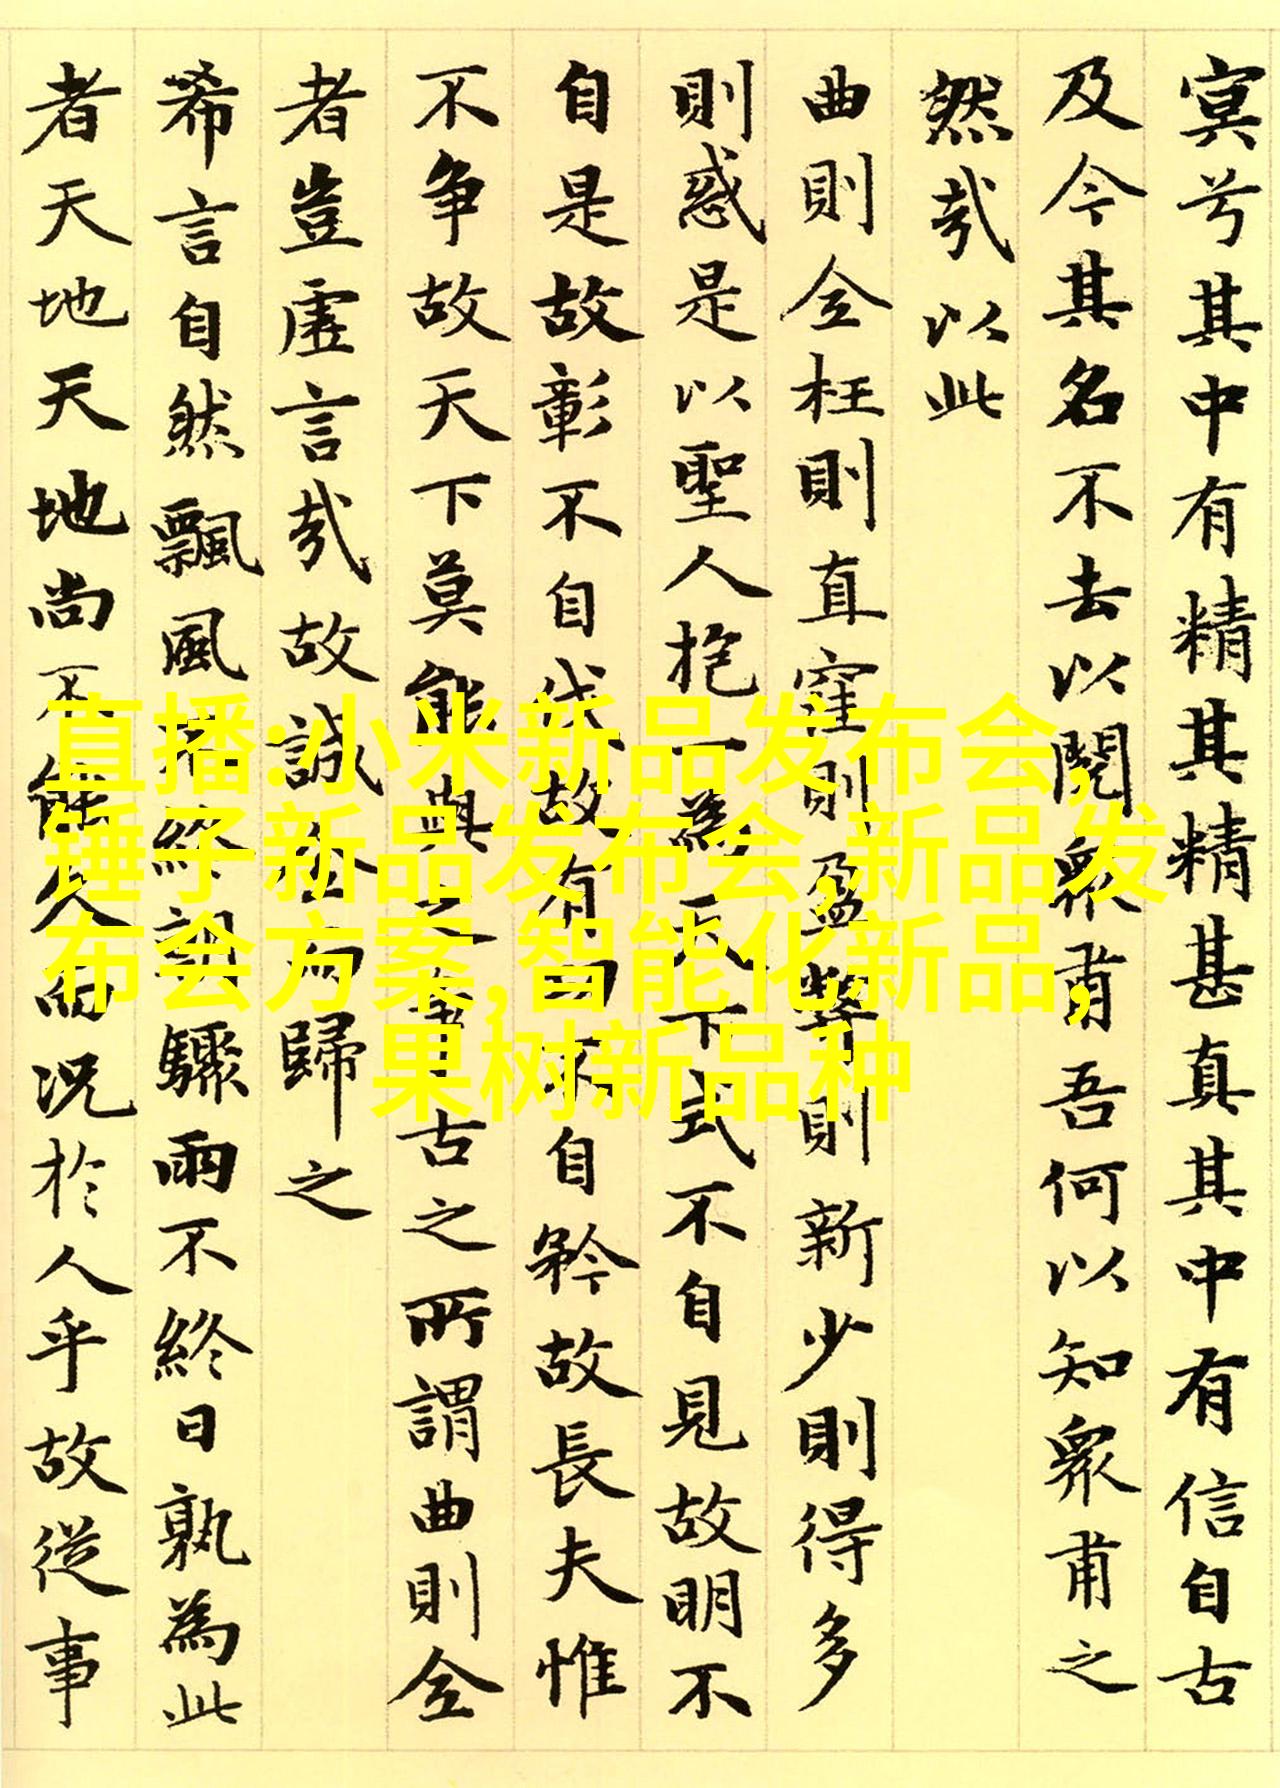 窅兮其中有精其精甚真其中有信自古
及今其名不去以閱衆甫吾何以知衆甫之
然哉以此
曲則全枉則直窪則盈弊則新少則得多
則惑是以聖人抱一為天下式不自見故明不
自是故彰不自伐故有功不自矜故長夫惟
不争故天下莫能與之争古之所謂曲則全
者豈虚言哉故誠全而歸之
希言自然飄風不終朝驟雨不終日孰為此
者天地天地尚不能久而况於人乎故從事
直播:小米新品发布会,
锤子新品发布会,新品发
布会方案,智能化新品,
果树新品种